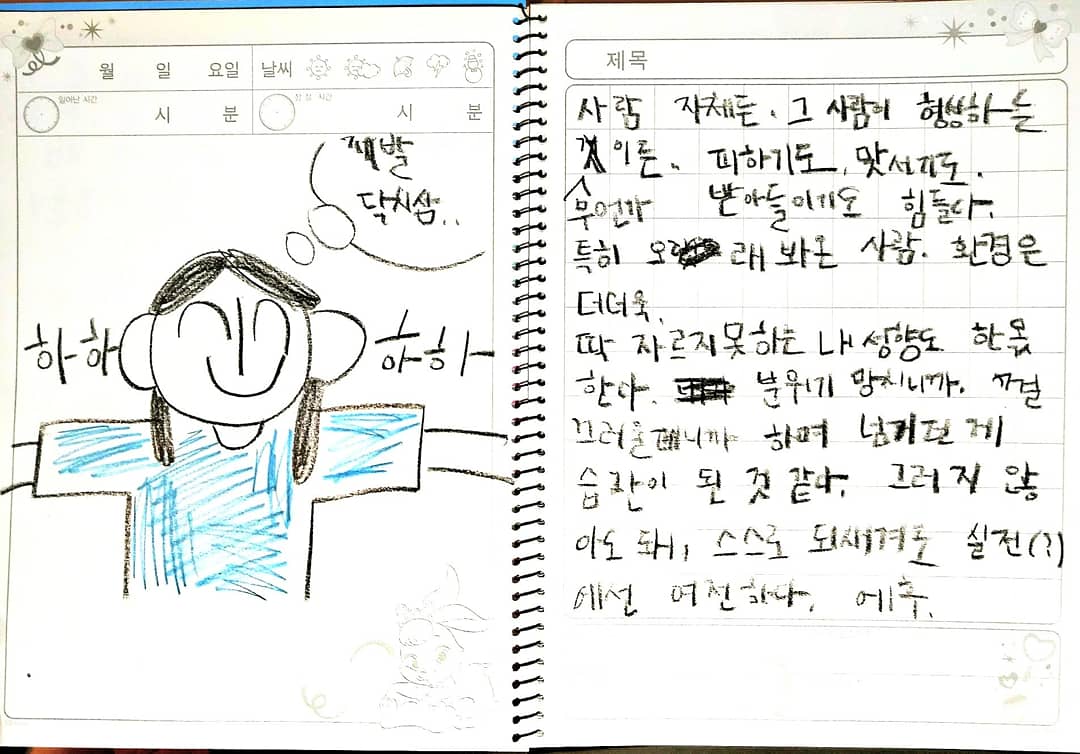 월 일 요일 날씨
일어난 시간
시 분 시 분
제발
닥치삼..
하하 하하
제목
사람 자체든. 그 사람이 형성하는
것이든. 피하기도, 맞서기도.
무언가 받아들이기도 힘들다.
특히 오래 봐온 사람. 환경은
더더욱.
딱 자르지못하는 내 성향도 한몫
한다. 분위기 망치니까. 껄
끄러울테니까 하며 넘기던 게
습관이 된 것 같다. 그러지 않
아도 돼, 스스로 되새겨도 실전(?)
에선 여전하다. 에휴.